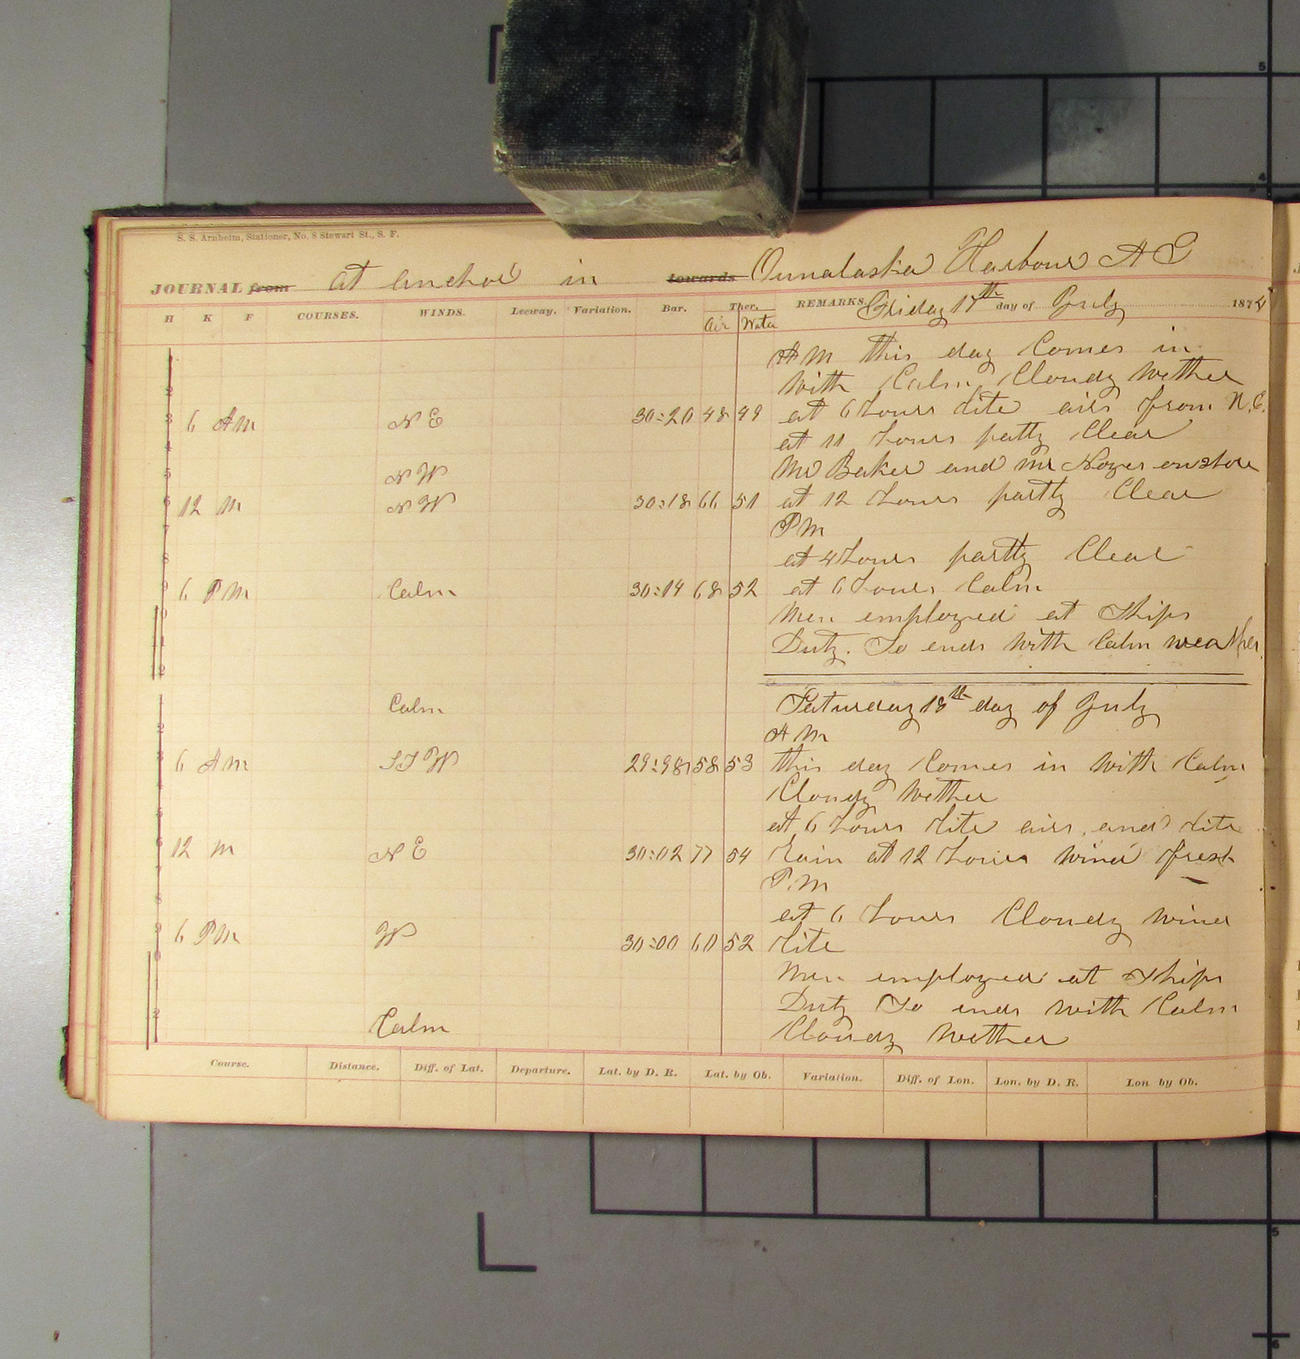 S. S. Arnheim, Stationer, No. 8 Stewart St., S. F.
JOURNAL from at anchor in towards Ounalaska Harbour
H K F COURSES. WINDS. Leeway. Variation. Bar. Ther. REMARKS. Friday 17th day of July 1874
Air Water
AM this day Comes in
2 With Calm Cloudy Wether
3 6 AM N E 30:20 48 49 at 6 hours lite airs from N.E.
4 at 11 hours partly Clear
5 N W Mr Baker and Mr Noyes on shore
6 12 M N W 30:18 66 51 at 12 hours partly Clear
7 PM
8 at 4 hours partly Clear
9 6 PM Calm 30:14 68 52 at 6 hours Calm
0 Men employed at Ships
1 Duty. So ends with Calm weather
2
Calm Saturday 18th day of July
2 AM
3 6 AM S S W 29:98 58 53 this day Comes in With Calm
4 Cloudy Wether
5 at 6 hours lite airs and lite
6 12 M N E 30:02 77 54 Rain at 12 hours wind fresh
7 P.M
8 at 6 hours Cloudy wind
9 6 PM W 30:00 60 52 lite
0 Men employed at Ships
1 Duty So ends with Calm
2 Calm Cloudy Wether
Course. Distance. Diff. of Lat. Departure. Lat. by D. R. Lat. by Ob. Variation. Diff. of Lon. Lon. by D. R. Lon. by Ob.
5
4
5
6